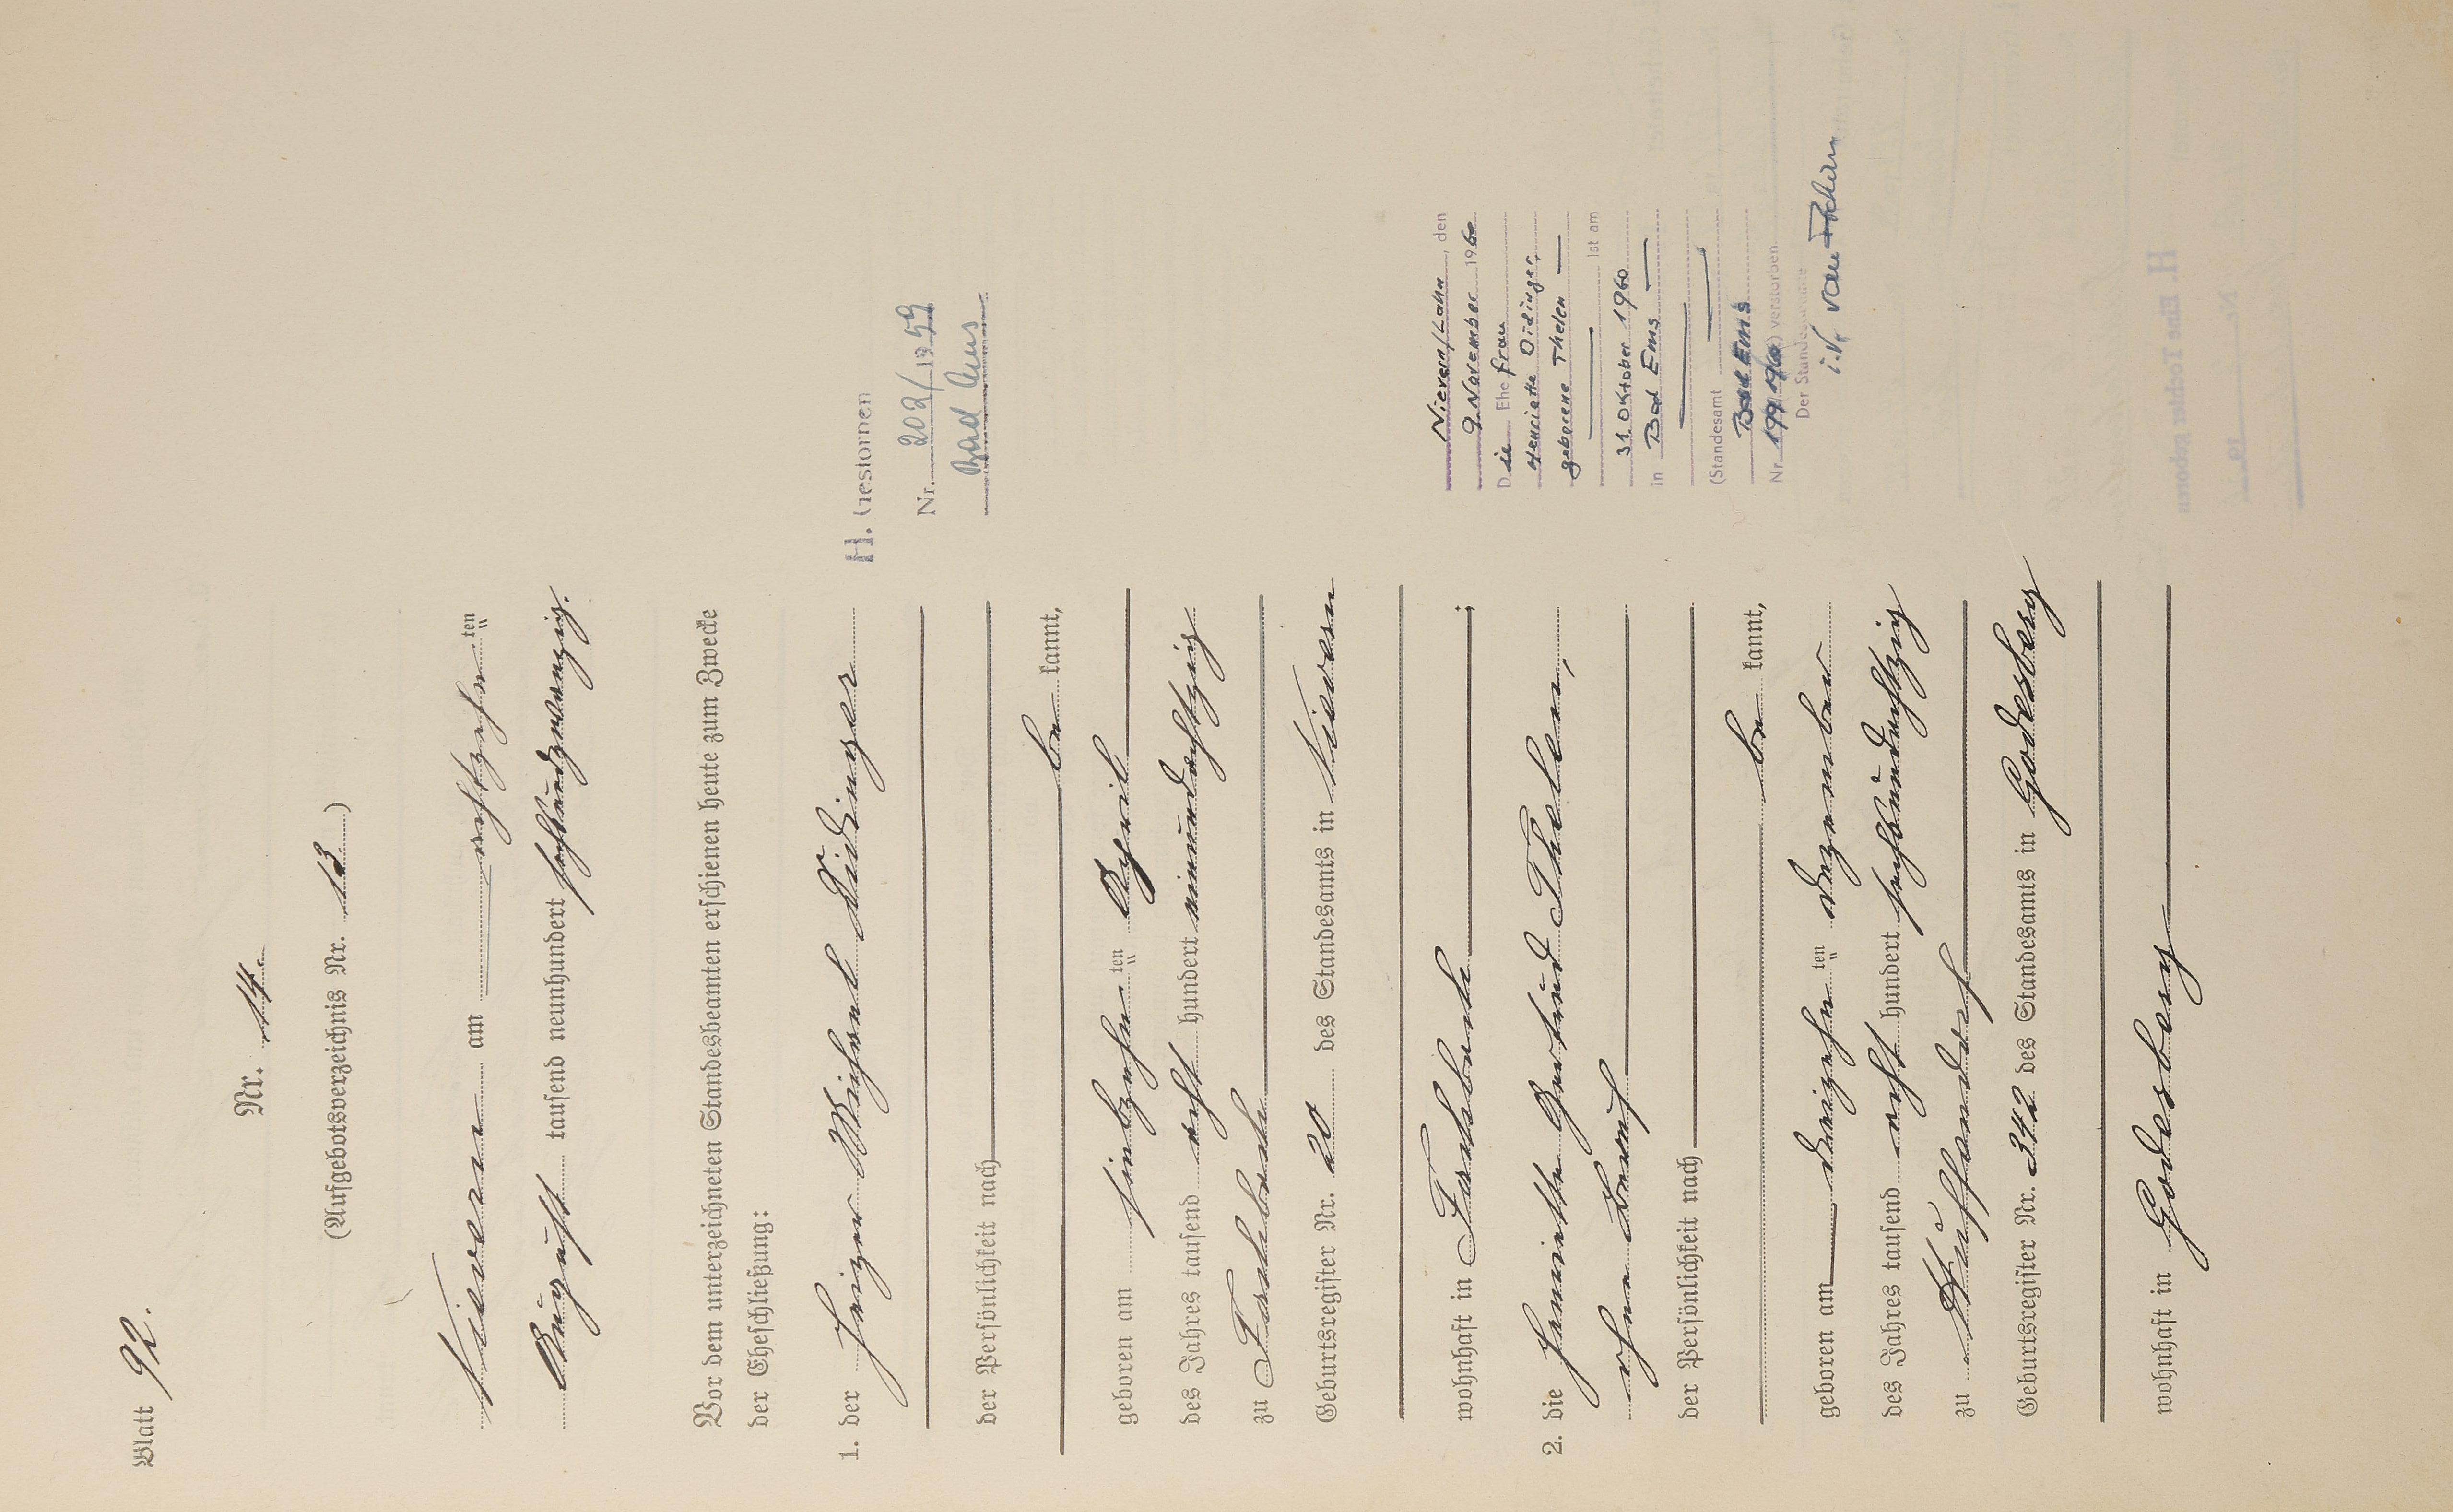 Blatt 92.
Nr. 14.
(Aufgebotsverzeichnis Nr. 13.)
Nievern am achtzehn ten
August tausend neunhundert sechsundzwanzig.
Vor dem unterzeichneten Standesbeamten erschienen heute zum Zwecke
der Eheschließung:
1. der Heizer Michael Oidinger
der Persönlichkeit nach
be kannt,
geboren am siebzehn ten April
des Jahres tausend acht hundert neunundachtzig
zu Fachbach
Geburtsregister Nr. 20 des Standesamts in Nievern
wohnhaft in Fachbach ;
2. die Henriette Gertrud Thelen,
ohne Beruf
der Persönlichkeit nach
be kannt,
geboren am dreizehn ten Dezember
des Jahres tausend acht hundert sechsundachtzig
zu Muffendorf
Geburtsregister Nr. 342 des Standesamts in Godesberg
wohnhaft in Godesberg
H. Gestorben
Nr. 202/1959
Bad Ems
Nievern/Lahn, den
9. November 1960
Die Ehefrau
Henriette Oidinger,
geborene Thelen
ist am
31. Oktober 1960
in Bad Ems
(Standesamt
Bad Ems
Nr. 199/1960) verstorben
Der Standesbeamte
i.V.